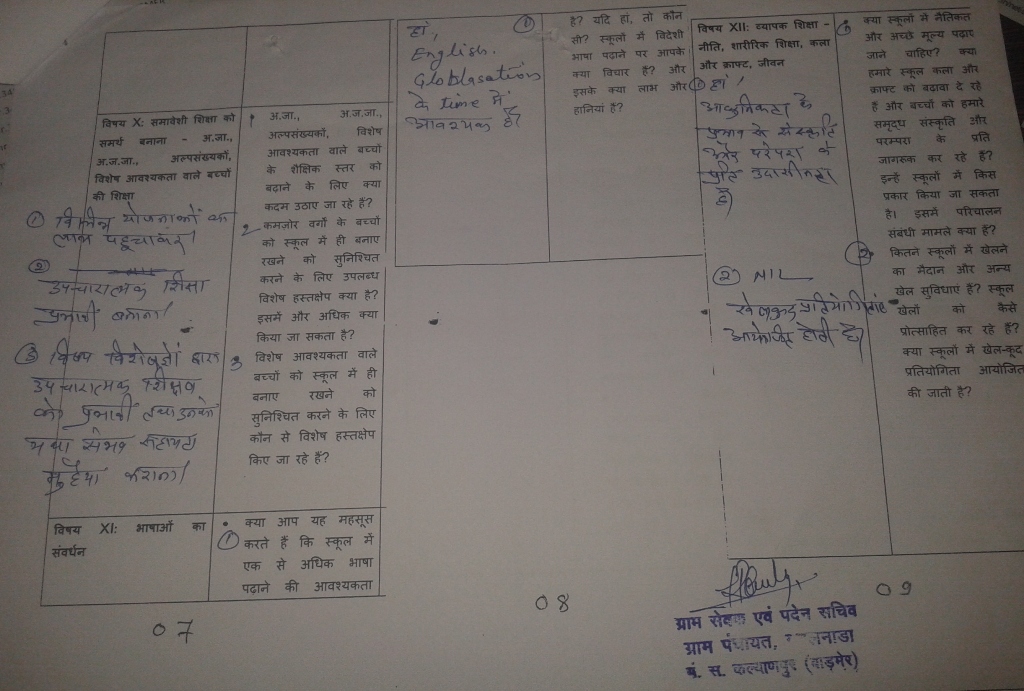 विषय X: समावेशी शिक्षा को
समर्थ बनाना - अ.जा.,
अ.ज.जा., अल्पसंख्यकों,
विशेष आवश्यकता वाले बच्चों
की शिक्षा
① विभिन्न योजनाओं का
लाभ पहुचाकर।
②
उपचारात्मक शिक्षा
प्रभावी बनाना।
③ विषय विशेषज्ञों द्वारा
उपचारात्मक शिक्षण
को प्रभावी तथा उनको
यथा संभव सहायता
मुहैया कराना।
1 अ.जा., अ.ज.जा.,
अल्पसंख्यकों, विशेष
आवश्यकता वाले बच्चों
के शैक्षिक स्तर को
बढ़ाने के लिए क्या
कदम उठाए जा रहे हैं?
2 कमज़ोर वर्गों के बच्चों
को स्कूल में ही बनाए
रखने को सुनिश्चित
करने के लिए उपलब्ध
विशेष हस्तक्षेप क्या है?
इसमें और अधिक क्या
किया जा सकता है?
3 विशेष आवश्यकता वाले
बच्चों को स्कूल में ही
बनाए रखने को
सुनिश्चित करने के लिए
कौन से विशेष हस्तक्षेप
किए जा रहे हैं?
विषय XI: भाषाओं का
संवर्धन
• क्या आप यह महसूस
① करते हैं कि स्कूल में
एक से अधिक भाषा
पढ़ाने की आवश्यकता
07
हां,
English.
Globlasation
के time में
आवश्यक है।
① है? यदि हां, तो कौन
सी? स्कूलों में विदेशी
भाषा पढ़ाने पर आपके
क्या विचार हैं? और
इसके क्या लाभ और
हानियां हैं?
08
विषय XII: व्यापक शिक्षा -
नीति, शारीरिक शिक्षा, कला
और क्राफ्ट, जीवन
① हां,
आधुनिकता के
प्रभाव के संस्कृति
और परंपरा के
प्रति उदासीनता
है।
② NIL
खेलकूद प्रतियोगिताएं
आयोजित होती है।
① क्या स्कूलों में नैतिकता
और अच्छे मूल्य पढ़ाए
जाने चाहिए? क्या
हमारे स्कूल कला और
क्राफ्ट को बढ़ावा दे रहे
हैं और बच्चों को हमारे
समृद्ध संस्कृति और
परम्परा के प्रति
जागरूक कर रहे हैं?
इन्हें स्कूलों में किस
प्रकार किया जा सकता
है। इसमें परिचालन
संबंधी मामले क्या हैं?
② कितने स्कूलों में खेलने
का मैदान और अन्य
खेल सुविधाएं हैं? स्कूल
खेलों को कैसे
प्रोत्साहित कर रहे हैं?
क्या स्कूलों में खेल-कूद
प्रतियोगिता आयोजित
की जाती है?
09
ग्राम सेवक एवं पदेन सचिव
ग्राम पंचायत,
पं. स. कल्याणपुर (बाड़मेर)